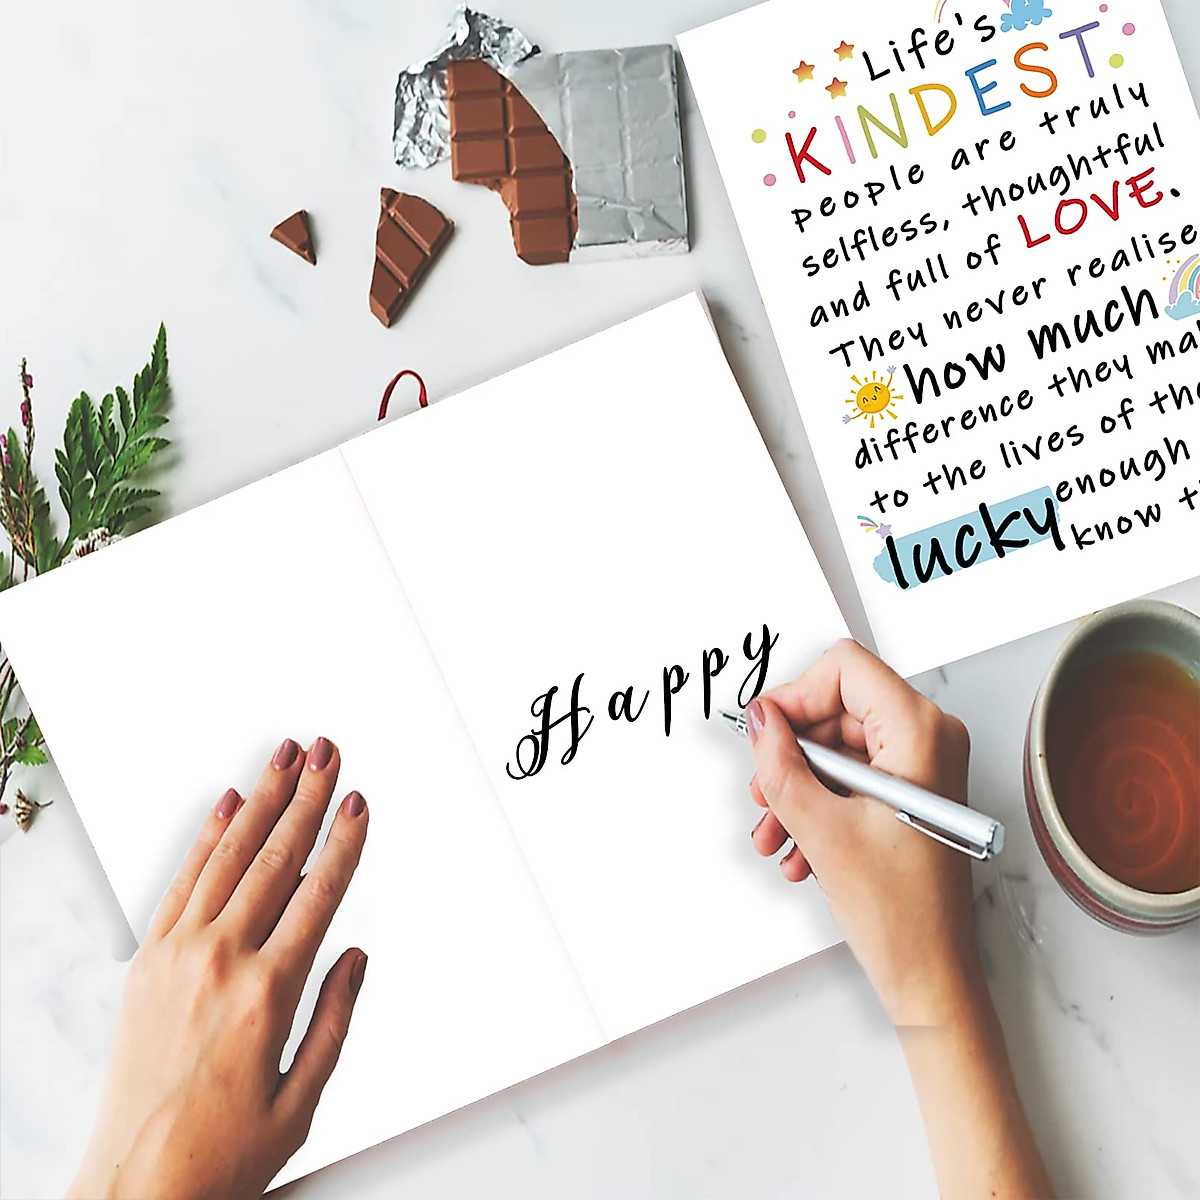 Life's
KINDEST
people are truly
selfless, thoughtful
and full of LOVE.
They never realise
how much
difference they
to the lives of
lucky enough
know
Happy